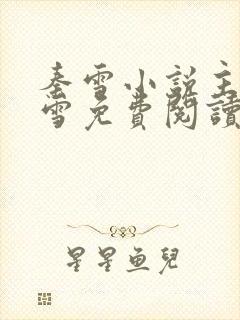 秦雪小說主
雪免費閱讀
星星魚兒